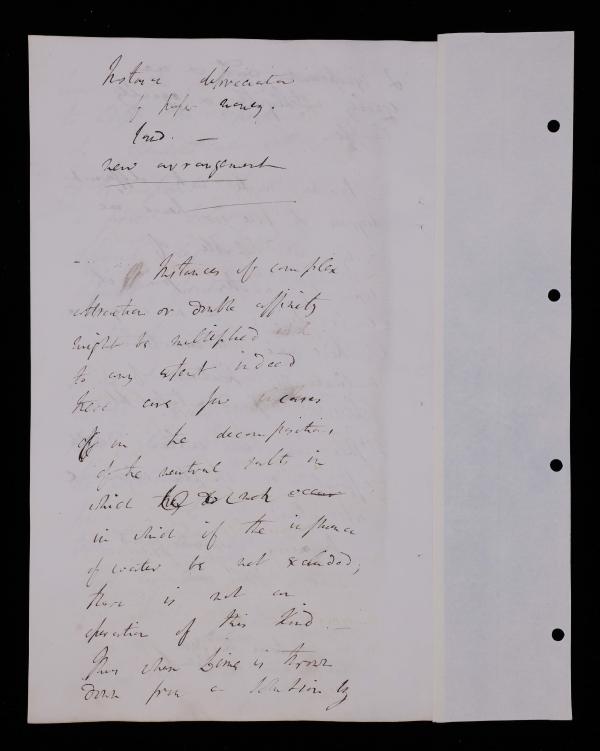 Instance depreciation
of paper money.
new arrangement
Instances of complex
attraction or double affinity
might be multiplied
to any extent indeed
there are few cases
in the decompositions
of the neutral salts in
which they do not occur
in which if the influence
of water be not excluded;
there is not an
operation of this kind. —
Thus when Lime is thrown
down from a solution by